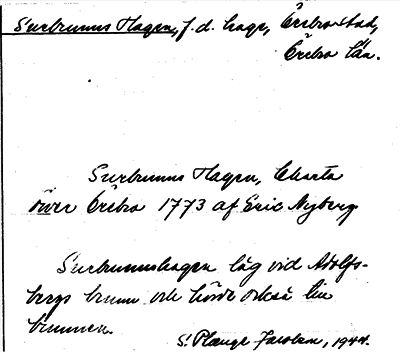 Surbrunns Hagen, f.d. hage, Örebro stad,
Örebro län.
Surbrunns Hagen, Charta
över Örebro 1773 af Eric Nyberg
Surbrunnshagen låg vid Adolfs-
bergs brunn och hörde också till
brunnen.
S. Plænge Jacobson, 1944.